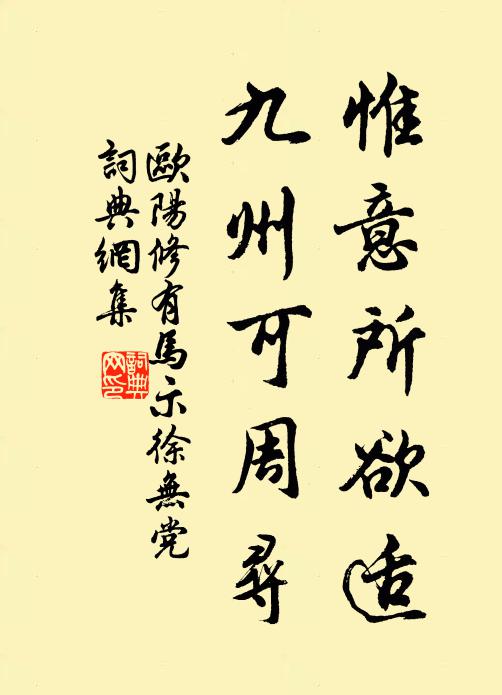 惟意所欲适
九州可周尋
歐陽修有馬示徐無党
詞典網集
詞典
网印